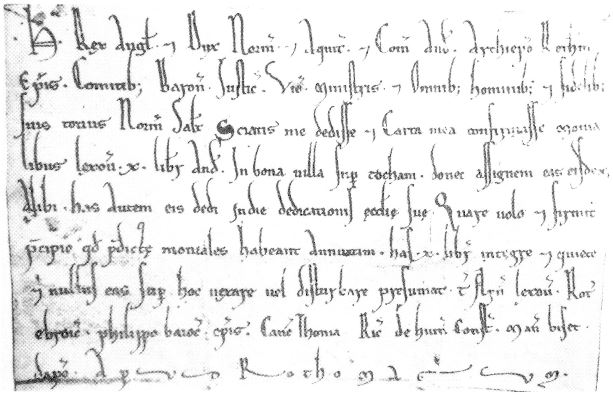 H. Rex Angl. et Dux Norm. et Aquit. et Com. And. Archiepo Rothm.
Epis. Comitib; Baron. Justic. Vic. Ministris. et Omnib; hominib; et fidelib;
suis totius Norm. Salt. Sciatis me dedisse et Carta mea confirmasse monia
libus lexou. x. libr And. In bona villa sup tocham. donec assignem eas eisdem
Alibi. has Autem eis dedi In die dedicationis ecclie sue. Quare volo et firmit
precipio qd pdicte moniales habeant Annuatim. has .x. libr integre et quiete
et nullus eas sup hoc vexare vel disturbare presumat. t. lexou. Rot
ebroic. philippo baioc. epis. Canc Thoma Ric de hum Const. Man biset
dapo. Ap vd Rothomagum.